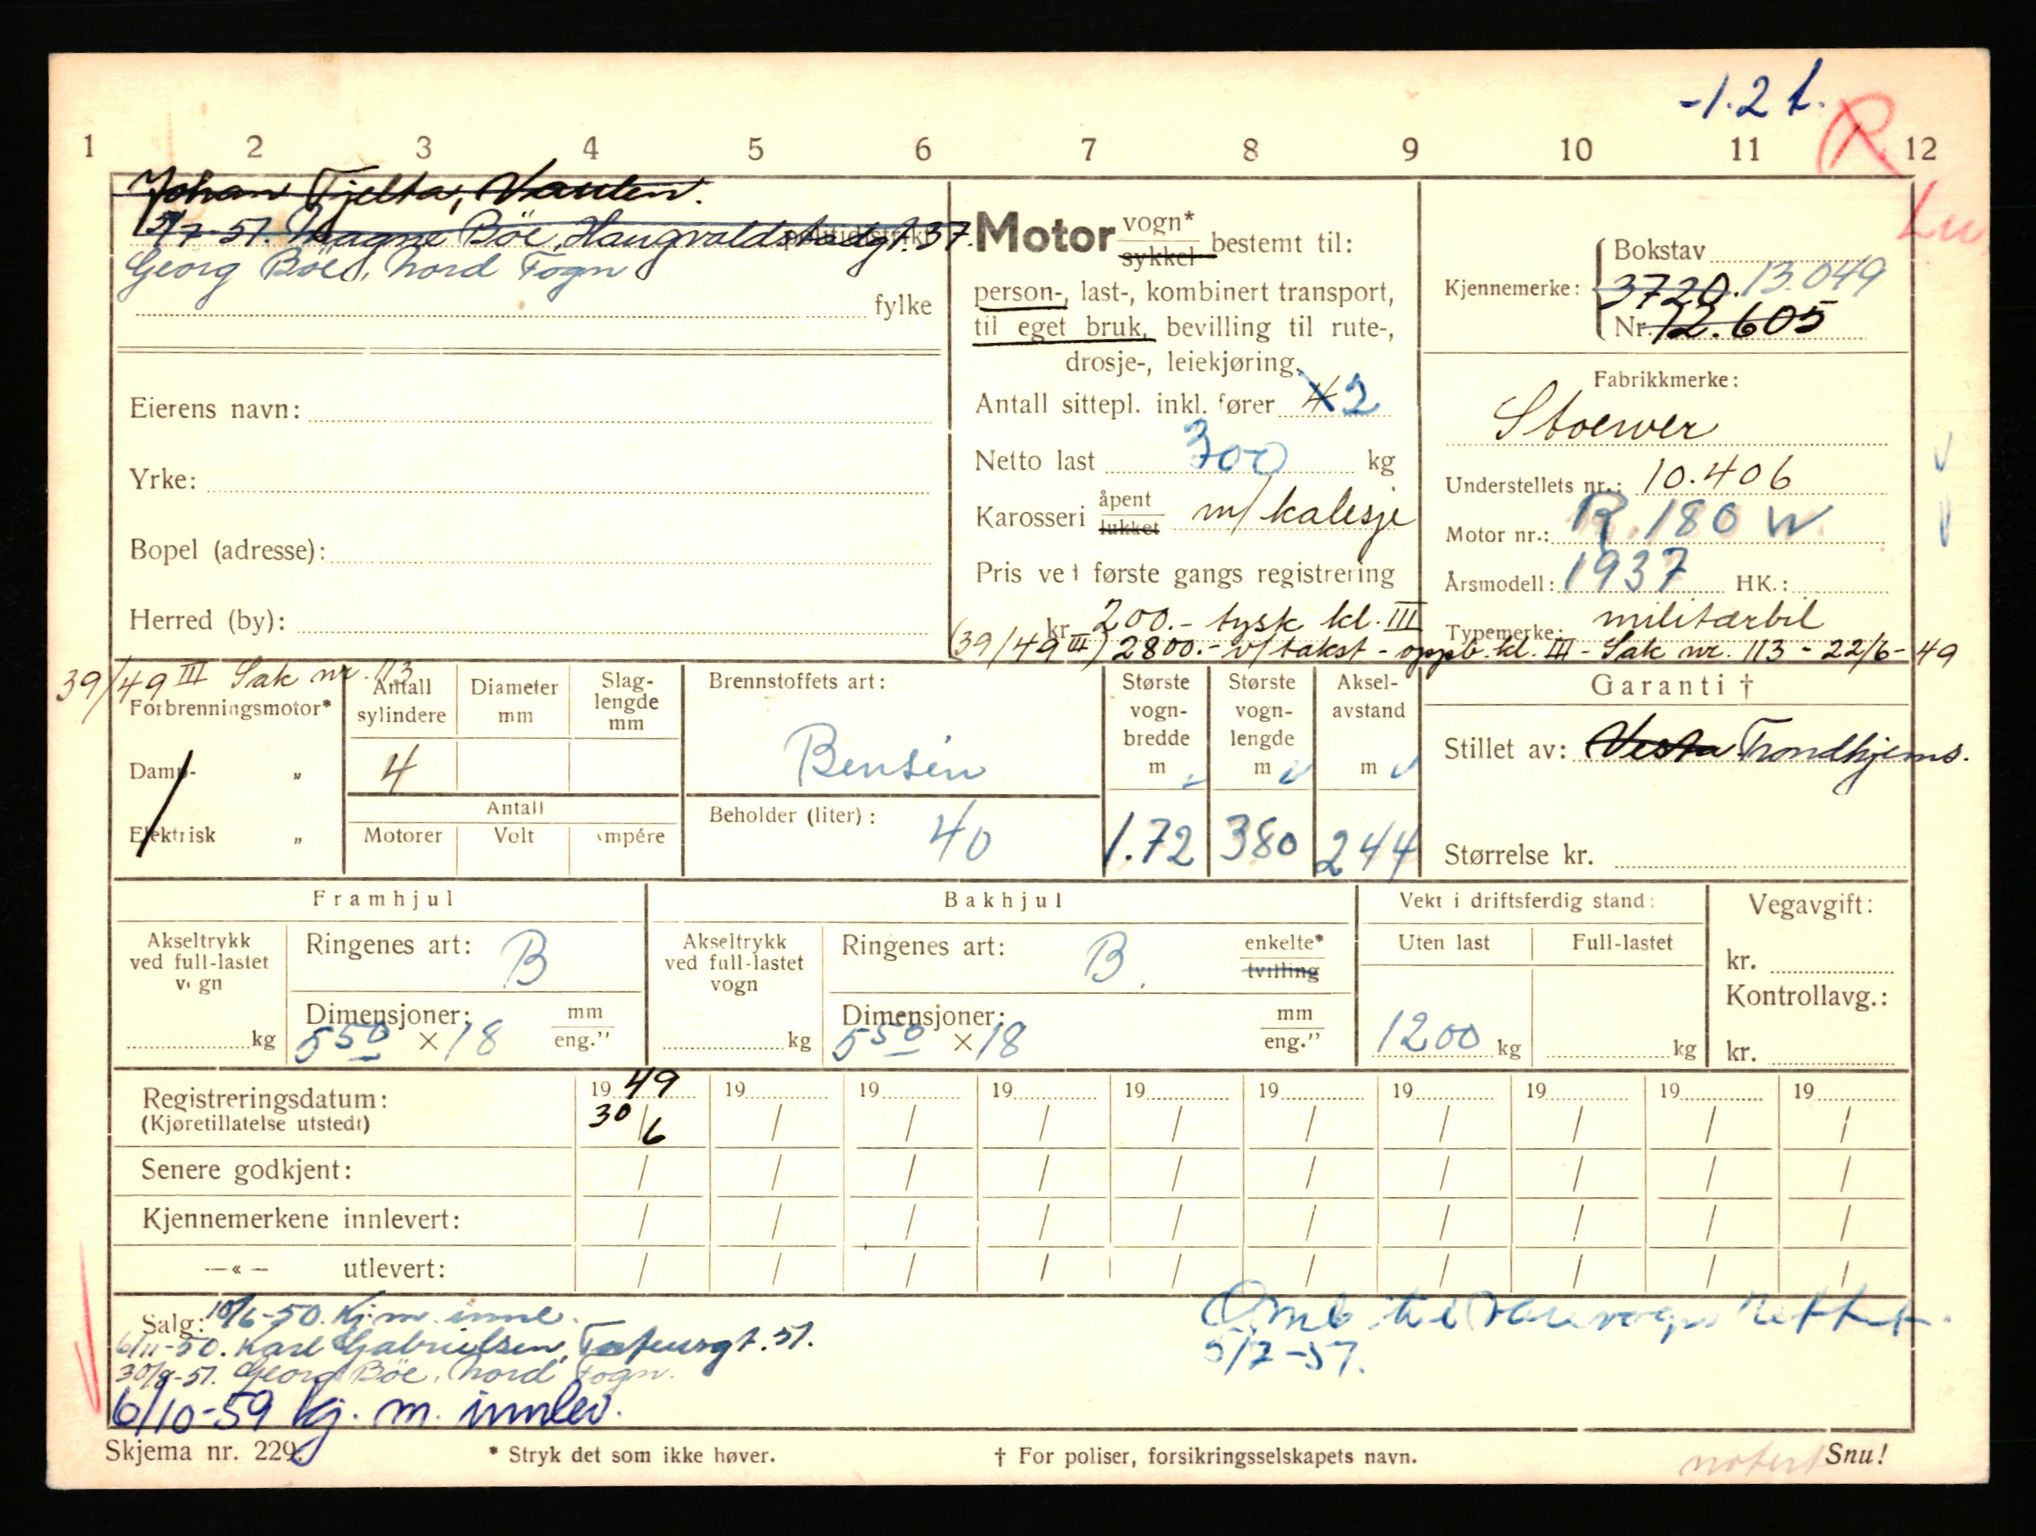 -1.2 t.
R
1 2 3 4 5 6 7 8 9 10 11 12
Johan Tjelta, Vaulen.
5/7-57. Magne Böe, Haugvaldstadgt. 37.
politidistrikt
Georg Böe, Nord Fogn
fylke
Eierens navn:
Yrke:
Bopel (adresse):
Herred (by):
Motor vogn*
sykkel bestemt til:
person-, last-, kombinert transport,
til eget bruk, bevilling til rute-,
drosje-, leiekjøring.
Antall sittepl. inkl. fører 4 2
Netto last 300 kg
Karosseri åpent
lukket m/kalesje
Pris ved første gangs registrering
kr. 200.- tysk kl. III
(39/49 III) 2800.- v/takst - oppb. kl. III - Sak nr. 113 - 22/6-49
Bokstav
Kjennemerke: 3720. 13.049
Nr. 12.605
Fabrikkmerke:
Stoewer
Understellets nr.: 10.406
Motor nr.: R 180 W.
Årsmodell: 1937 HK.:
Typemerke: militærbil
39/49 III Sak nr. 113
Forbrenningsmotor*
Damp- „
Elektrisk „
Antall sylindere
4
Diameter mm
Slaglengde mm
Antall
Motorer Volt Ampére
Brennstoffets art:
Bensin
Beholder (liter): 40
Største vognbredde m
1.72
Største vognlengde m
380
Akselavstand m
244
Garanti †
Stillet av: Vesta Trondhjems.
Størrelse kr.
Framhjul
Akseltrykk ved full-lastet vogn
kg
Ringenes art: B
Dimensjoner: mm
550 × 18 eng.”
Bakhjul
Akseltrykk ved full-lastet vogn
kg
Ringenes art: B. enkelte*
tvilling
Dimensjoner: mm
550 × 18 eng.”
Vekt i driftsferdig stand:
Uten last Full-lastet
1200 kg kg
Vegavgift:
kr.
Kontrollavg.:
kr.
Registreringsdatum: 1949 19 19 19 19 19 19 19 19 19
(Kjøretillatelse utstedt) 30/6 / / / / / / / / /
Senere godkjent: / / / / / / / / / /
Kjennemerkene innlevert: / / / / / / / / / /
—«— utlevert: / / / / / / / / / /
Salg: 10/6-50. Kj.m. innl.
6/11-50. Karl Gabrielsen,
30/8-57. Georg Böe, Nord Fogn.
6/10-59 kj. m. innlev.
Omb til varevogn rettet.
5/7-57.
Skjema nr. 229.
* Stryk det som ikke høver.
† For poliser, forsikringsselskapets navn.
notert
Snu!